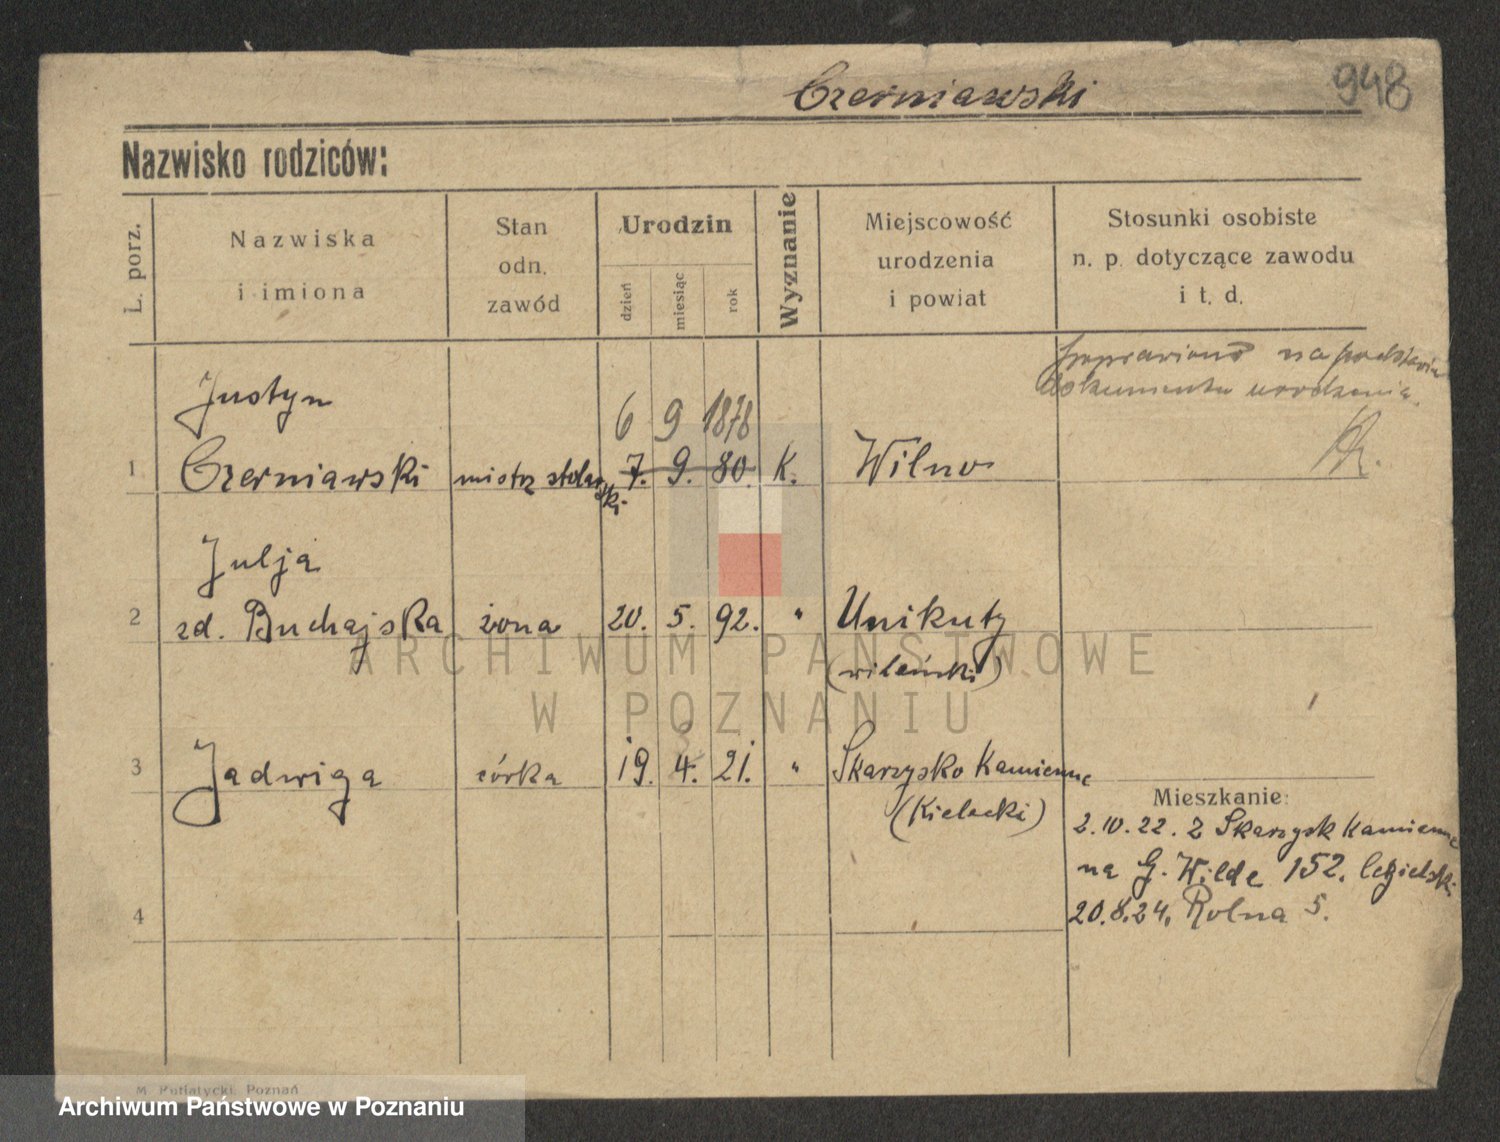 Czerniawski 948
Nazwisko rodziców:
L. porz.
Nazwiska
i imiona
Stan
odn.
zawód
Urodzin
dzień
miesiąc
rok
Wyznanie
Miejscowość
urodzenia
i powiat
Stosunki osobiste
n. p. dotyczące zawodu
i t. d.
poprawiono na podstawie
dokumentu urodzenia.
Justyn
6 9 1878
1 Czerniawski mistrz stolarski 7. 9. 80. K. Wilno
Julja
2 zd. Buchajska żona 20. 5. 92. " Unikuty
(wileński)
3 Jadwiga córka 19. 4. 21. " Skarzysko Kamienne
(Kielecki)
Mieszkanie:
2.10.22. z Skarzysk Kamienne
na G. Wilde 152. Cegielski
4
20.8.24. Rolna 5.
ARCHIWUM PAŃSTWOWE
W POZNANIU
M. Putiatycki, Poznań
Archiwum Państwowe w Poznaniu